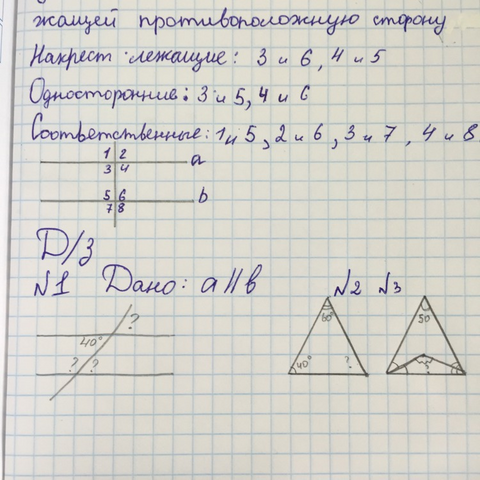 жащей противоположную сторону
Накрест лежащие: 3 и 6, 4 и 5
Односторонние: 3 и 5, 4 и 6
Соответственные: 1 и 5, 2 и 6, 3 и 7, 4 и 8
1 2 a
3 4
5 6 b
7 8
Д/з
№1 Дано: a||b №2 №3
?
40°
? ?
60°
40° ?
50
?